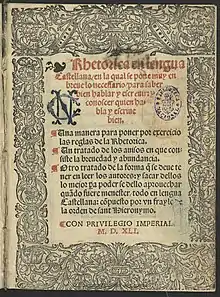 Rhetorica en lengua
Castellana, en la qual se põe muy en
breue lo necessario para saber
bien hablar y escreuir: y
conoscer quien ha-
bla y escriue
bien.
Una manera para poner por exercicio
las reglas de la Rhetorica.
Un tratado de los auisos en que con
siste la breuedad y abundancia.
Otro tratado de la forma q̃ se deue te
ner en leer los autores: y sacar dellos
lo mejor para poder se dello aprouechar
quãdo fuere menester. todo en lengua
Castellana: cõpuesto por vn frayle de
la orden de sant Hieronymo.
CON PRIVILEGIO IMPERIAL
M. D. XLI.